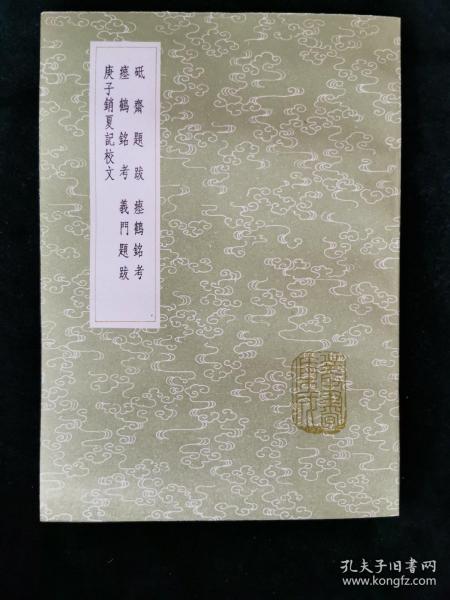 砥齋題跋 瘞鶴銘考
瘞鶴銘考 義門題跋
庚子銷夏記校文
叢書
集成
孔夫子旧书网
www.kongfz.com